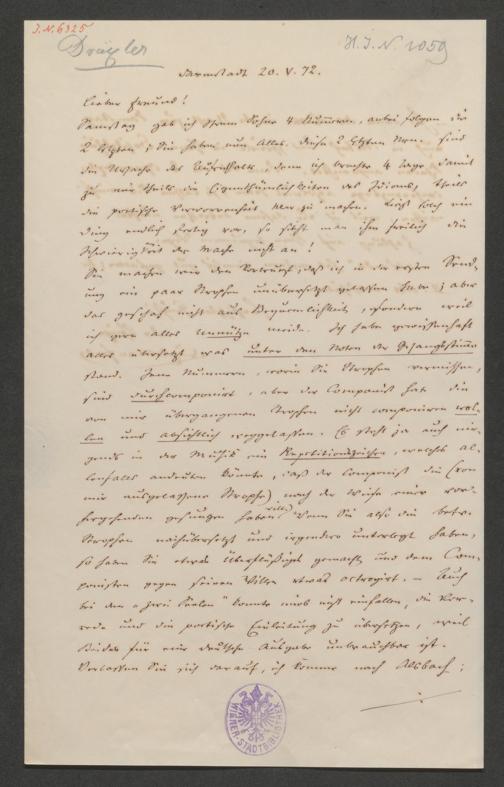 J.N. 6325
Dräxler
H.J.N. 1059
Darmstadt 20. V. 72.
Lieber Freund!
Samstag gab ich Ihrem Sohne 4 Nummern, anbei folgen die
2 letzten; Sie haben nun Alles. Diese 2 letzten Nrn. sind
die Ursache des Aufenthalts, denn ich brauchte 4 Tage damit
zu mir theils die Eigenthümlichkeiten des Idioms, theils
die poetische Verworrenheit klar zu machen. Liegt solch ein
Ding endlich fertig vor, so sieht man ihm freilich die
Schwierigkeit der Mache nicht an!
Sie machen mir den Vorwurf, daß ich in der ersten Send-
ung ein paar Strophen unübersetzt gelassen habe; aber
das geschah nicht aus Bequemlichkeit, sondern weil
ich gern alles Unnütze meide. Ich habe gewissenhaft
alles übersetzt, was unter den Noten der Gesangsstimme
stand. Jene Nummern, worin Sie Strophen vermissen,
sind durchcomponirt, aber der Componist hat die
von mir übergangenen Strophen nicht componiren wol-
len und absichtlich weggelassen. Es steht ja auch nir-
gends in der Musik ein Repetitionszeichen, welches al-
lenfalls andeuten könnte, daß der Componist die (von
mir ausgelassene Strophe) nach der Weise einer vor-
hergehenden gesungen haben will. Wenn Sie also die betr.
Strophen nachübersetzt und irgendwo unterlegt haben,
so haben Sie etwas Überflüßiges gemacht und dem Com-
ponisten gegen seinen Willen etwas octroyirt. – Auch
bei den "zwei Seelen" konnte mirs nicht einfallen, die Vor-
rede und die poetische Einleitung zu übersetzen, weil
Beides für eine deutsche Ausgabe unbrauchbar ist.
Verlassen Sie sich darauf, ich komme nach Alsbach;
WIENER-STADTBIBLIOTHEK